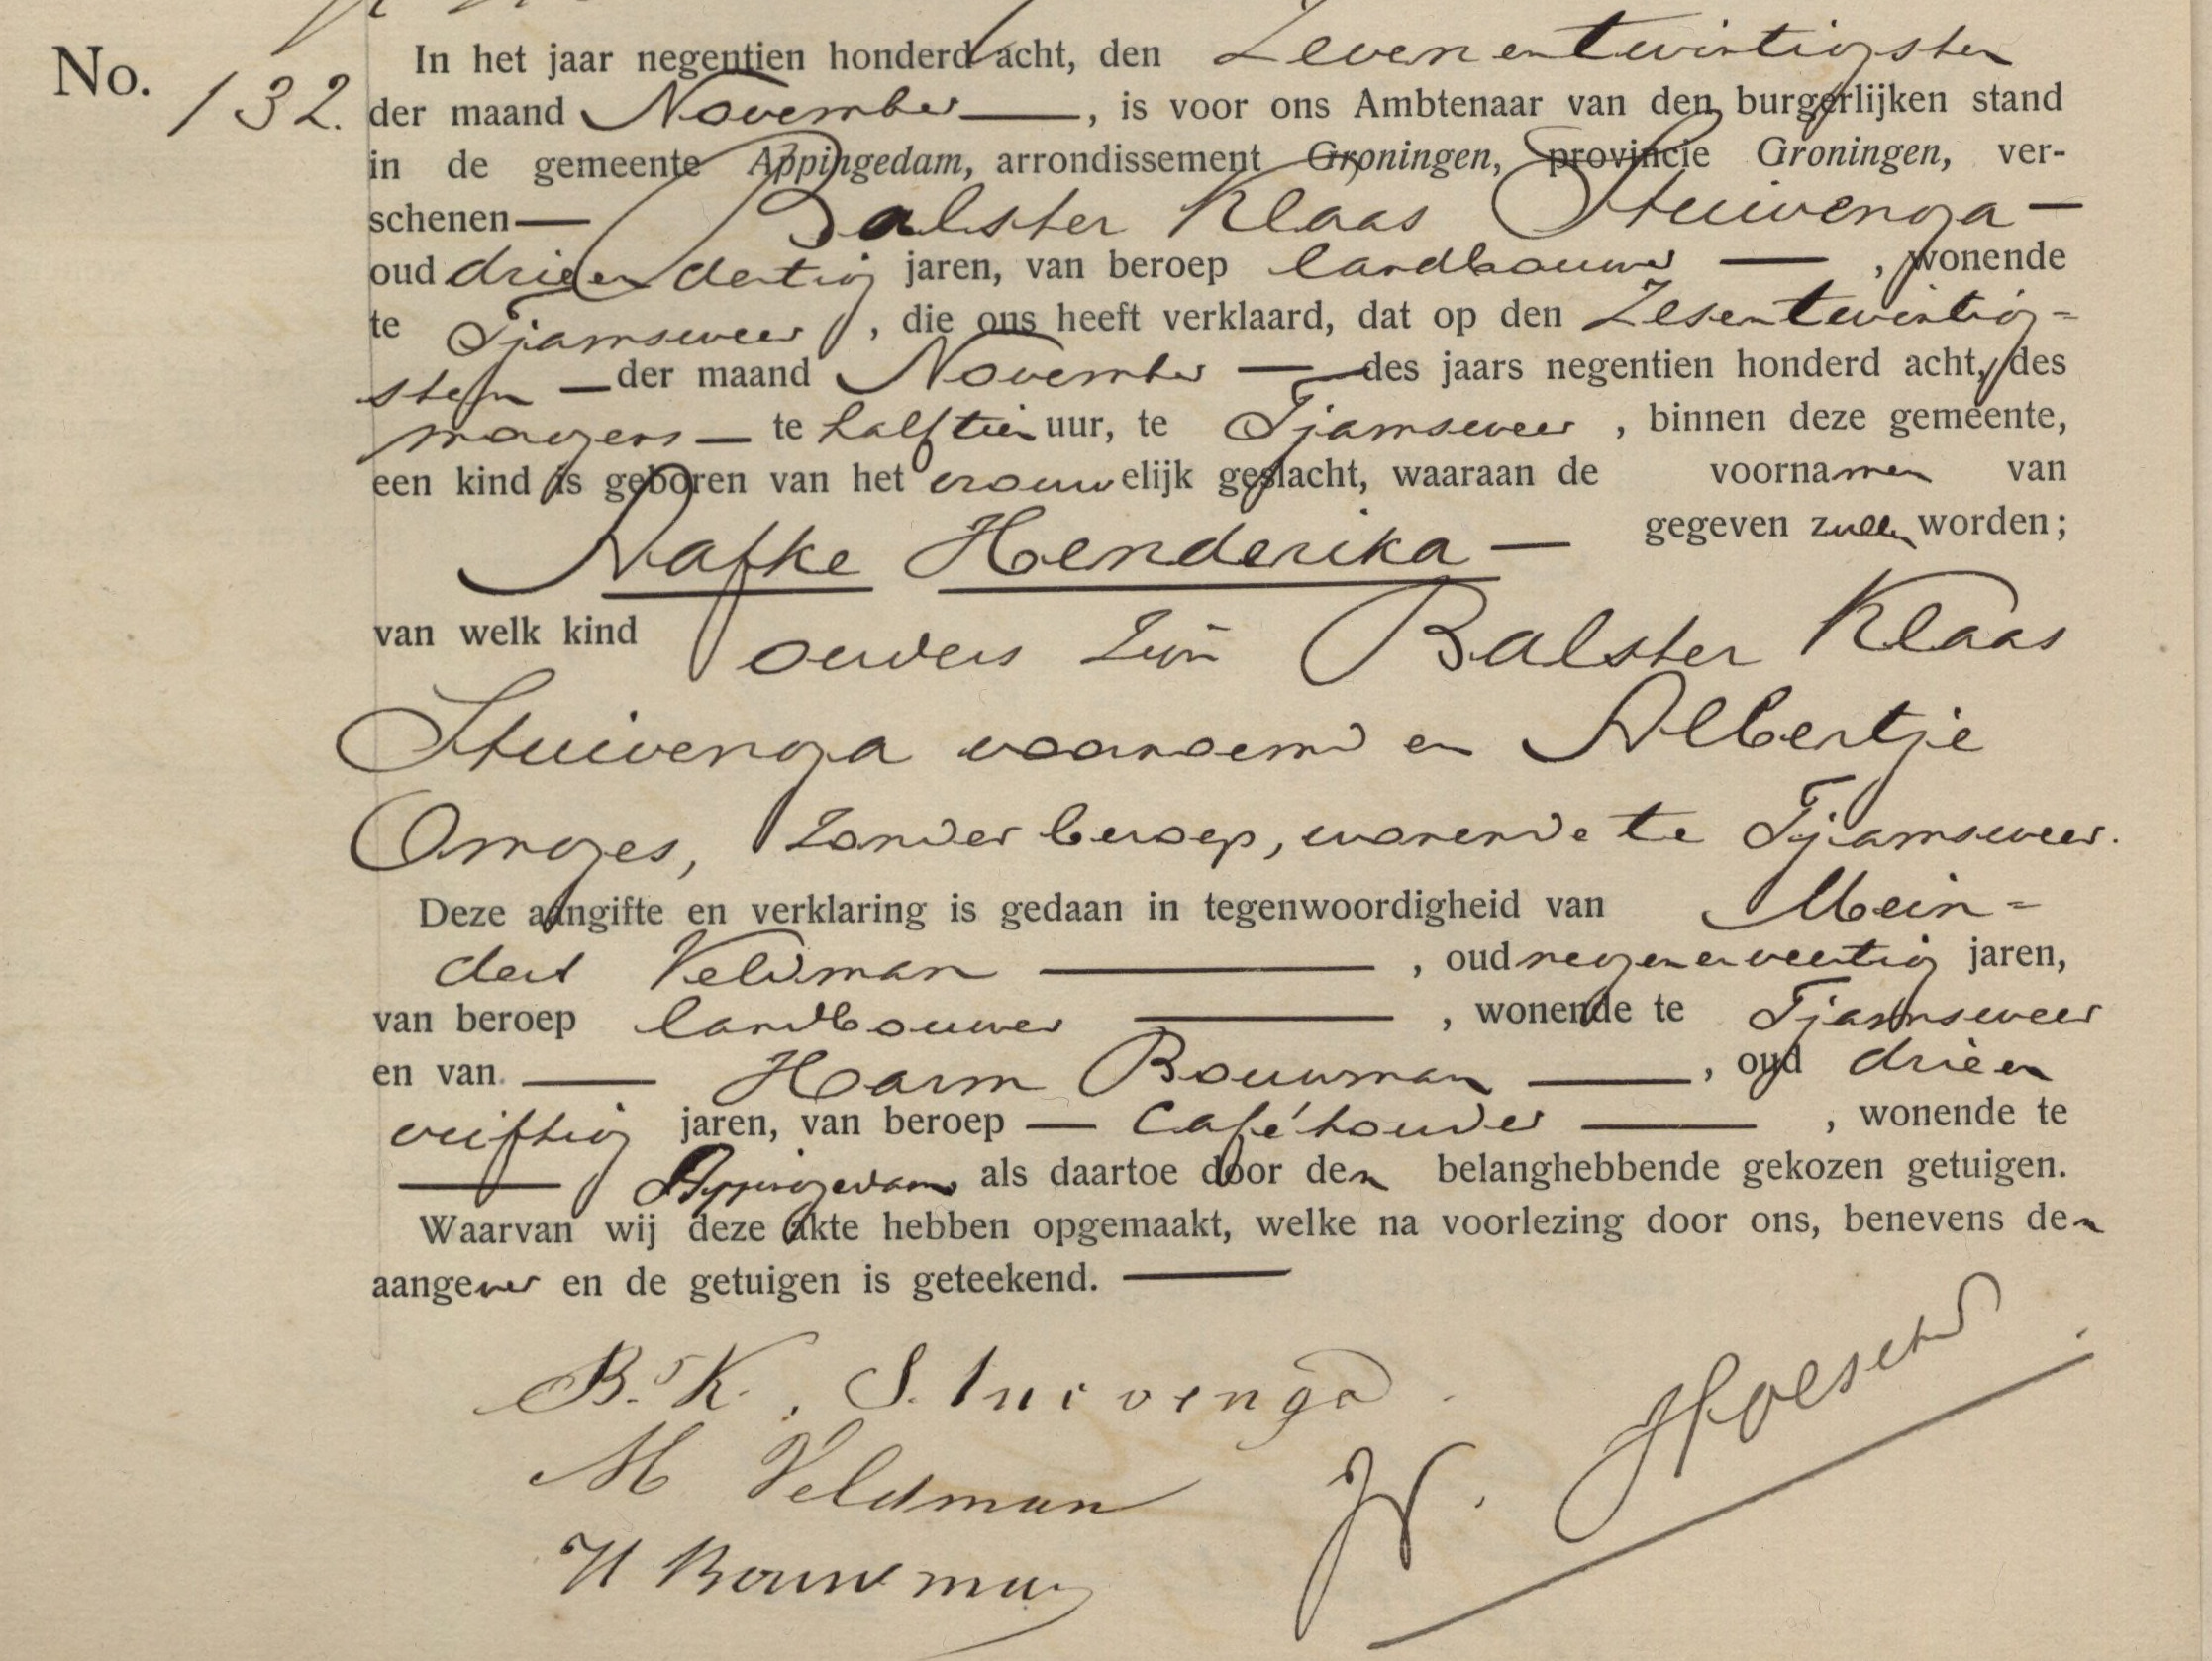 No. 132.
In het jaar negentien honderd acht, den Zevenentwintigsten
der maand November —, is voor ons Ambtenaar van den burgerlijken stand
in de gemeente Appingedam, arrondissement Groningen, provincie Groningen, ver-
schenen — Balster Klaas Stuivenga —
oud drieendertig jaren, van beroep landbouwer —, wonende
te Tjamsweer, die ons heeft verklaard, dat op den Zesentwintig=
sten — der maand November — des jaars negentien honderd acht, des
morgens — te half tien uur, te Tjamsweer, binnen deze gemeente,
een kind is geboren van het vrouwelijk geslacht, waaraan de voornamen van
Nafke Henderika — gegeven zullen worden;
van welk kind ouders zijn Balster Klaas
Stuivenga voornoemd en Albertje
Omges, zonder beroep, wonende te Tjamsweer.
Deze aangifte en verklaring is gedaan in tegenwoordigheid van Mein=
dert Veldman —, oud negenenveertig jaren,
van beroep landbouwer —, wonende te Tjamsweer
en van — Harm Bouwman —, oud drieen
vijftig jaren, van beroep — Caféhouder —, wonende te
— Appingedam als daartoe door den belanghebbende gekozen getuigen.
Waarvan wij deze akte hebben opgemaakt, welke na voorlezing door ons, benevens den
aangever en de getuigen is geteekend. —
B. K. Stuivenga.
M Veldman
H Bouwman